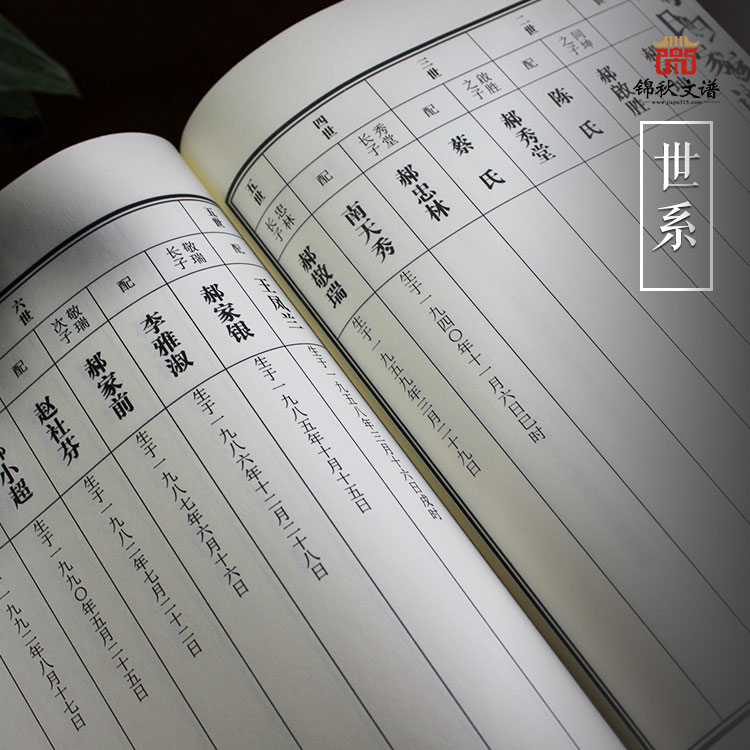 锦秋文谱
www.jiapu315.com
世系
二世
同坤之子
郝啟胜
配
陈氏
三世
啟胜之子
郝秀堂
配
蔡氏
四世
秀堂长子
郝忠林
配
南天秀
生于一九四〇年十一月六日巳时
五世
忠林长子
郝敬瑞
生于一九五九年二月二十九日
五世
配
王凤兰
生于一九五八年三月十六日戌时
敬瑞长子
郝家银
生于一九八五年十月十五日
配
李雅淑
生于一九八六年十二月二十八日
六世
敬瑞次子
郝家前
生于一九八七年六月十六日
配
赵社芬
生于一九八二年七月二十二日
小超
生于一九九〇年五月二十五日
生于一九九二年八月十七日